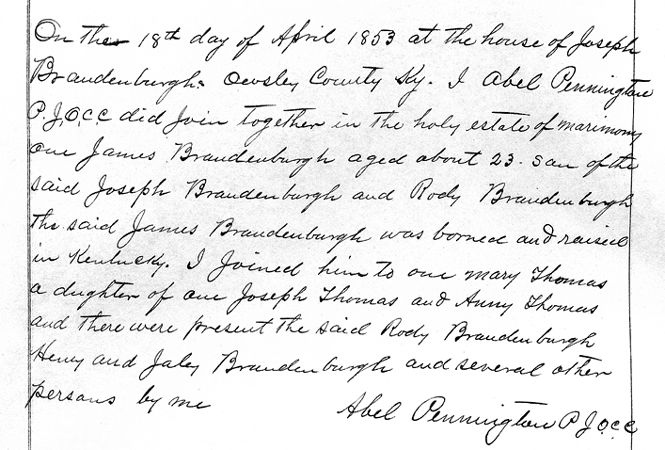 On the 18th day of April 1853 at the house of Joseph
Brandenburgh. Owsley County Ky. I Abel Pennington
P.J.O.C.C did join together in the holy estate of marimony
one James Brandenburgh aged about 23. son of the
said Joseph Brandenburgh and Rody Brandenburgh
the said James Brandenburgh was borned and raised
in Kentucky. I joined him to one Mary Thomas
a dughter of one Joseph Thomas and Anny Thomas
and there were present the said Rody Brandenburgh
Henry and Jaley Brandenburgh and several other
persons by me Abel Pennington P.J.O.C.C